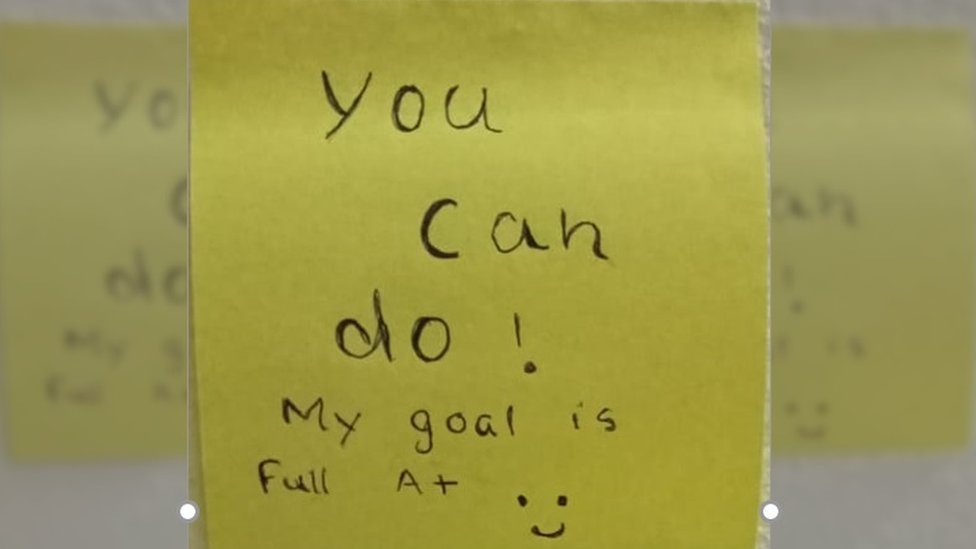 You
can
do!
My goal is
Full A+